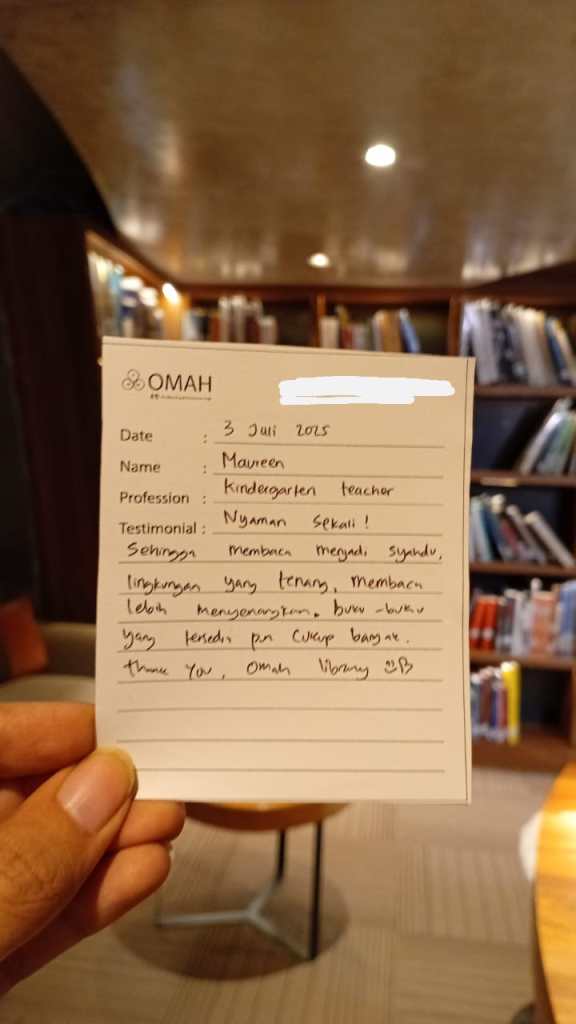 OMAH
Date : 3 Juli 2025
Name : Maureen
Profession : Kindergarten teacher
Testimonial : Nyaman sekali!
Sehingga membaca menjadi syahdu,
lingkungan yang tenang, membaca
lebih menyenangkan. buku-buku
yang tersedia pun cukup banyak.
thank you, Omah library